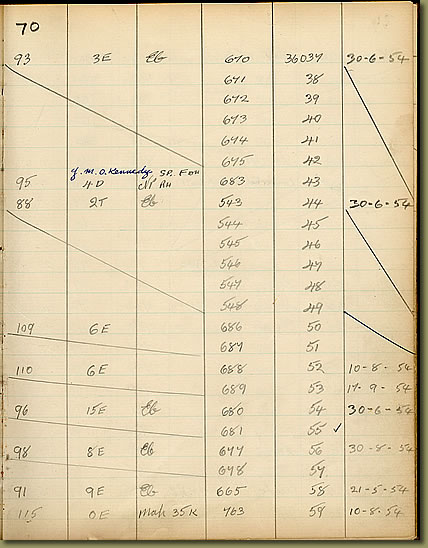 70
93 3E Eb 670 36037 30-6-54
671 38
672 39
673 40
674 41
675 42
y. M.O. Kennedy, SP. FOH
95 4D RH 683 43
88 2T Eb 543 44 30-6-54
544 45
545 46
546 47
547 48
548 49
109 6E 686 50
687 51
110 6E 688 52 10-8-54
689 53 17-9-54
96 15E Eb 680 54 30-6-54
681 55 ✓
98 8E Eb 677 56 30-8-54
678 57
91 9E Eb 665 58 21-5-54
115 0E mah 35K 763 59 10-8-54